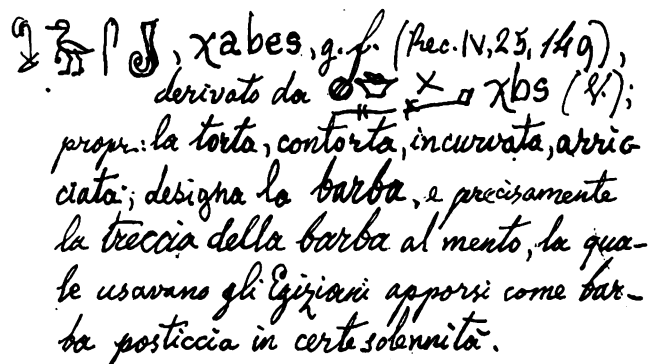 , χabes, g. f. (Rec. IV, 25, 149),
derivato da χbs (V.);
propr.: la torta, contorta, incurvata, arric-
ciata; designa la barba, e precisamente
la treccia della barba al mento, la qua-
le usavano gli Egiziani apporsi come bar-
ba posticcia in certe solennità.